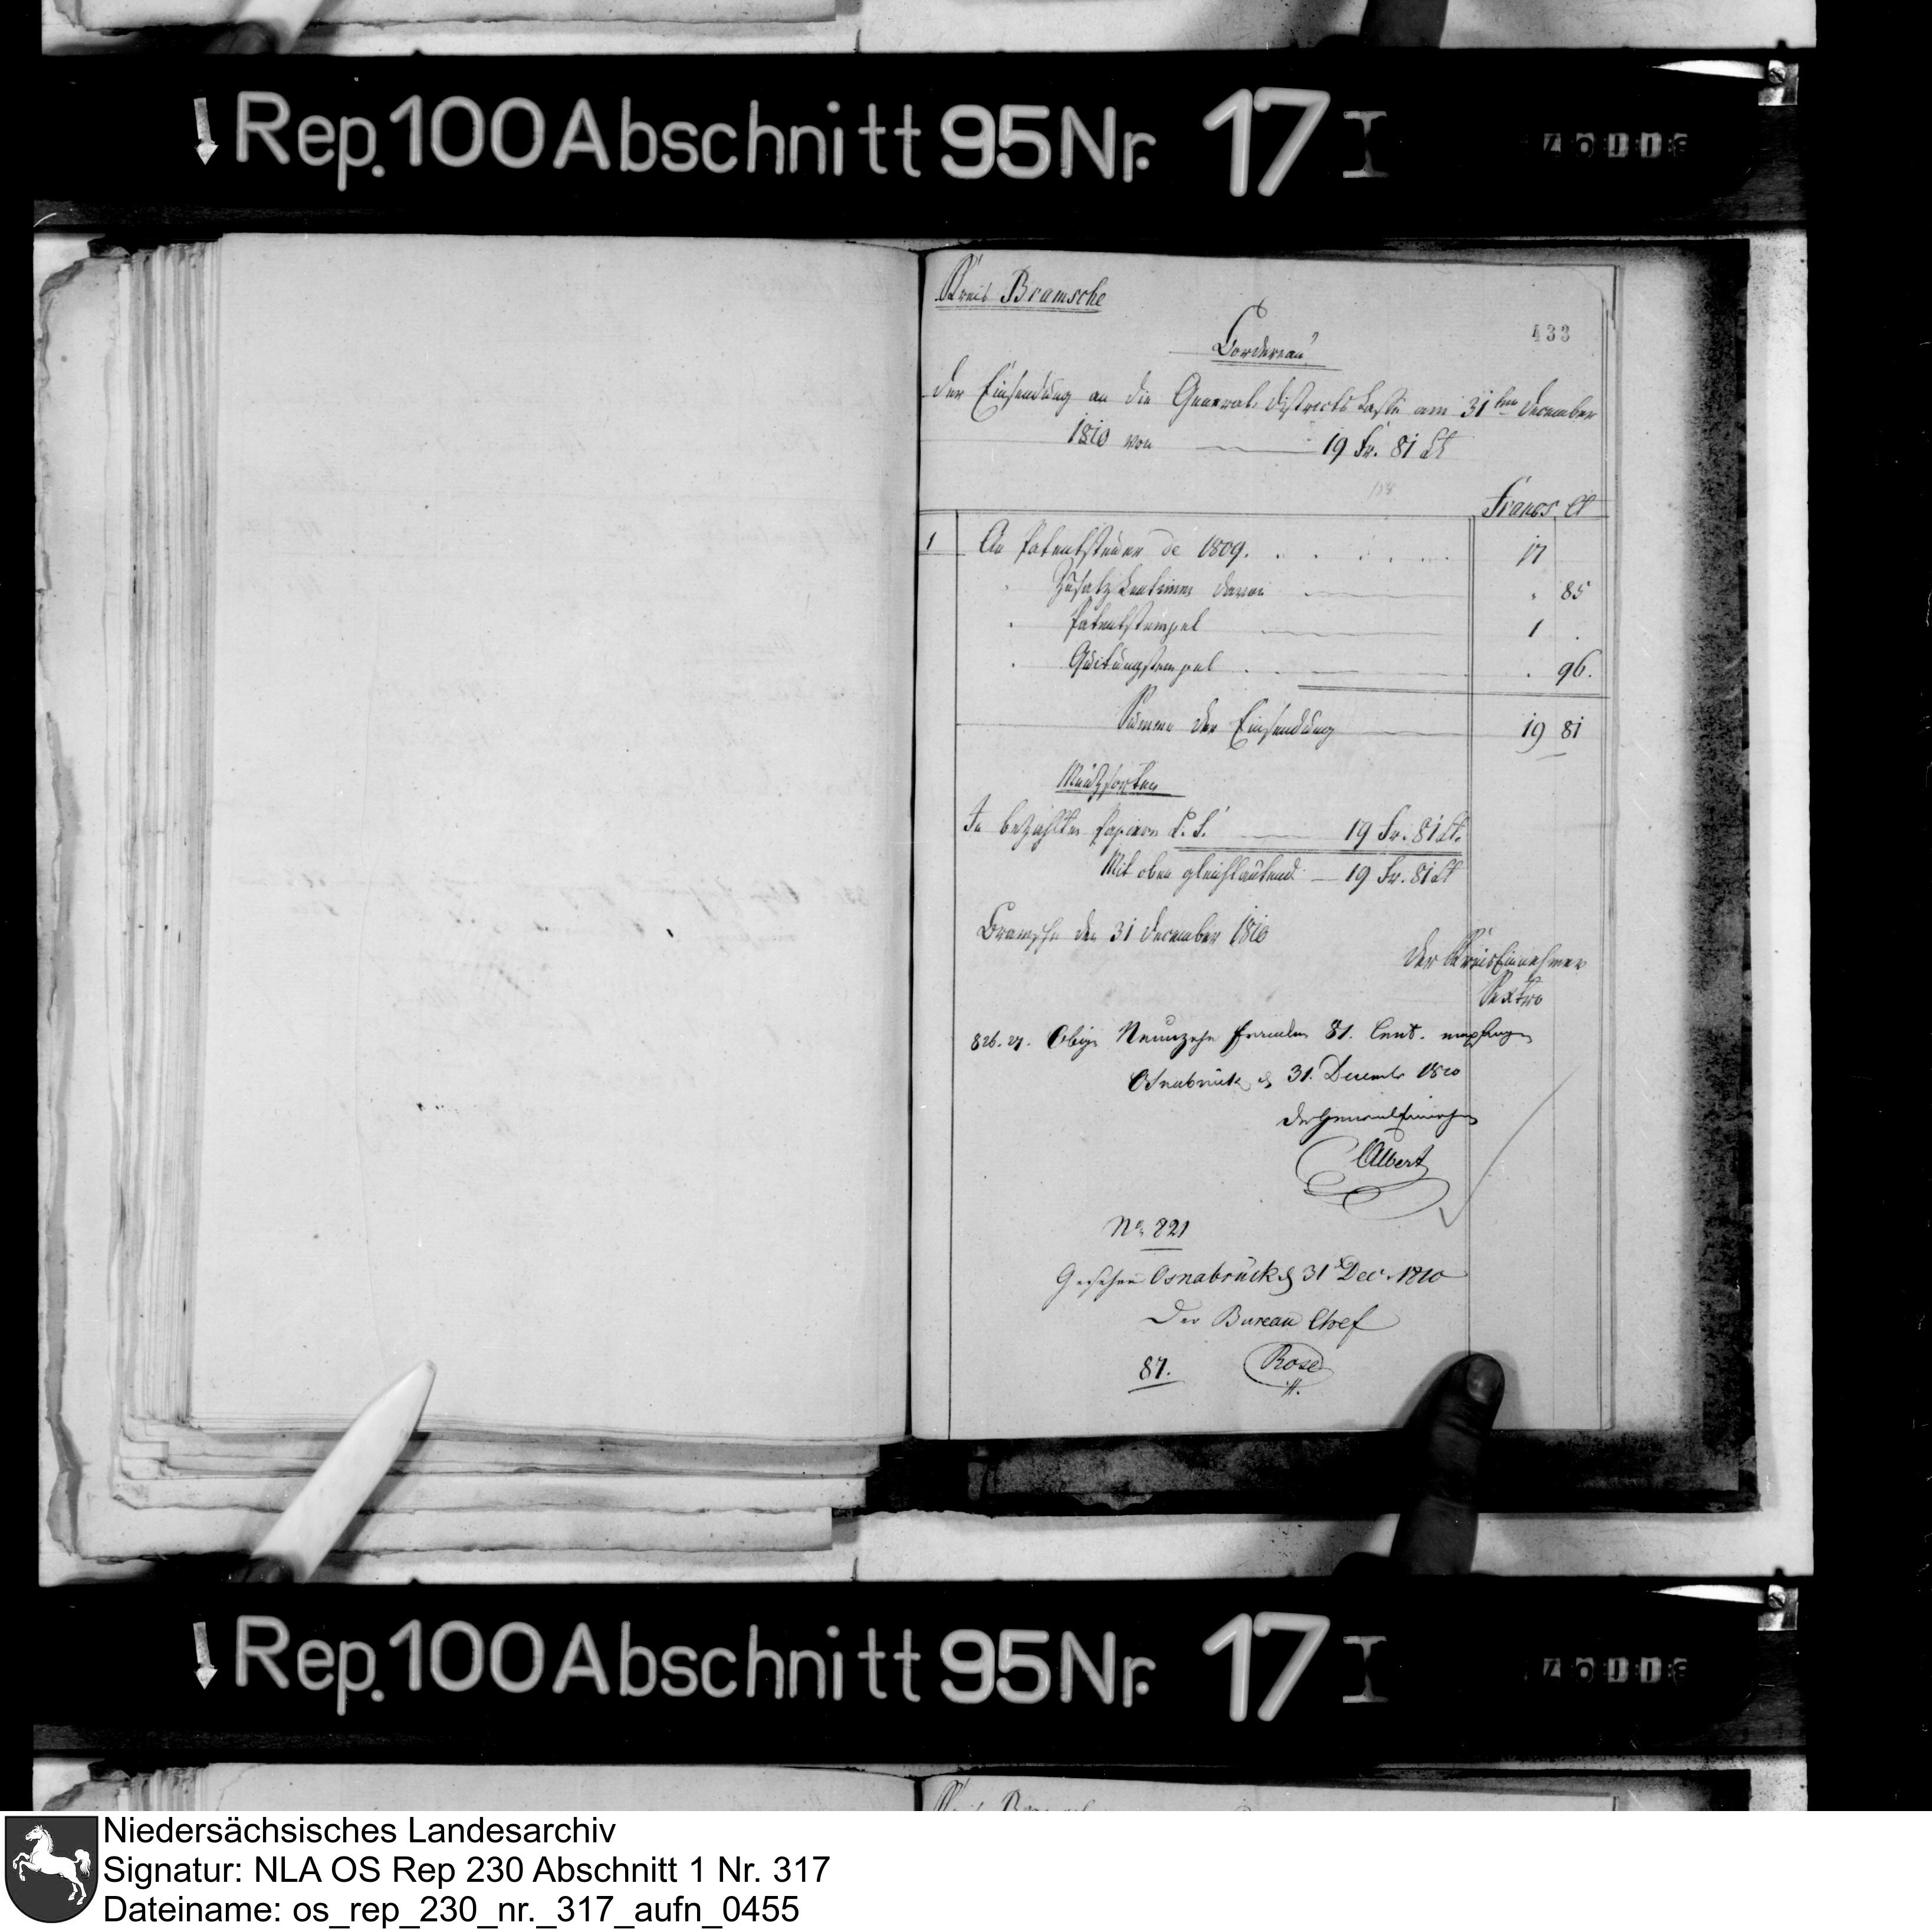 Rep. 100 Abschnitt 95 Nr. 17 I
Kreis Bramsche
433
Bordereau
der Einsendung an die General Districts Casse am 31ten December
1810 von 19 Fr. 81 Ct
Francs Ct
1 An Patentsteuer de 1809. 17
" Zusatz Centimen davon " 85
" Patentstempel 1 "
" Quitungstempel " 96.
Summe der Einsendung 19 81
Münzsorten
In bezahlten Papieren 19 Fr. 81 Ct.
Mit oben gleichlautend 19 Fr. 81 Ct
Bramsche den 31 December 1810
Der Kreis Einnehmer
Sextro
826. 27. Obige Neunzehn Franken 81. Cent. empfangen
Osnabrück d 31. Decembr 1810
der General Einnehmer
Albert
No 821
Gesehen Osnabrück d 31t Dec. 1810
Der Bureau Chef
87. Rose
Rep. 100 Abschnitt 95 Nr. 17 I
Niedersächsisches Landesarchiv
Signatur: NLA OS Rep 230 Abschnitt 1 Nr. 317
Dateiname: os_rep_230_nr._317_aufn_0455